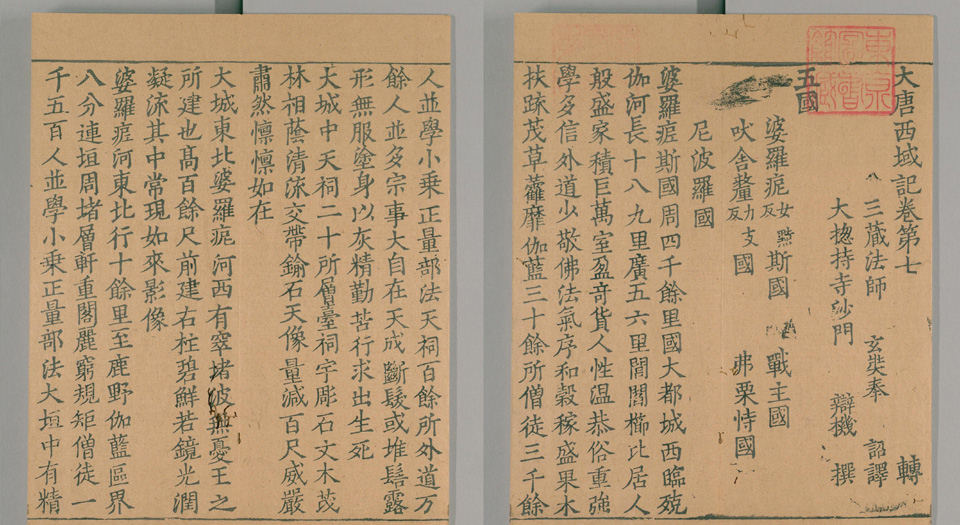 大唐西域記卷第七 轉
三藏法師 玄奘奉 詔譯
大揔持寺沙門 辯機 撰
五國
婆羅痆女黠反斯國 戰主國
吠舍釐力支反國 弗栗恃國
尼波羅國
婆羅痆斯國周四千餘里國大都城西臨殑
伽河長十八九里廣五六里閭閻櫛比居人
殷盛家積巨萬室盈奇貨人性溫恭俗重強
學多信外道少敬佛法氣序和穀稼盛果木
扶踈茂草靃靡伽藍三十餘所僧徒三千餘
人並學小乘正量部法天祠百餘所外道万
餘人並多宗事大自在天成斷髮或堆髻露
形無服塗身以灰精勤苦行求出生死
大城中天祠二十所層臺祠宇彫石文木茂
林相蔭清流交帶鍮石天像量減百尺威嚴
肅然懍懍如在
大城東北婆羅痆河西有窣堵波無憂王之
所建也高百餘尺前建右柱碧鮮若鏡光潤
凝流其中常現如來影像
婆羅痆河東北行十餘里至鹿野伽藍區界
八分連垣周堵層軒重閣麗窮規矩僧徒一
千五百人並學小乘正量部法大垣中有精